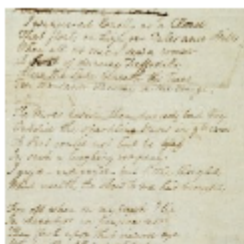 I wandered lonely as a Cloud
That floats on high o'er Vales and Hills
When all at once I saw a crowd
A host of dancing Daffodils
Along the Lake, beneath the trees
Ten thousand dancing in the breeze.
The waves beside them danced, but they
Outdid the sparkling waves in glee
A Poet could not but be gay
In such a laughing company
I gaz'd and gaz'd but little thought
What wealth the shew to me had brought
For oft when on my couch I lie
In vacant or in pensive mood
They flash upon that inward eye